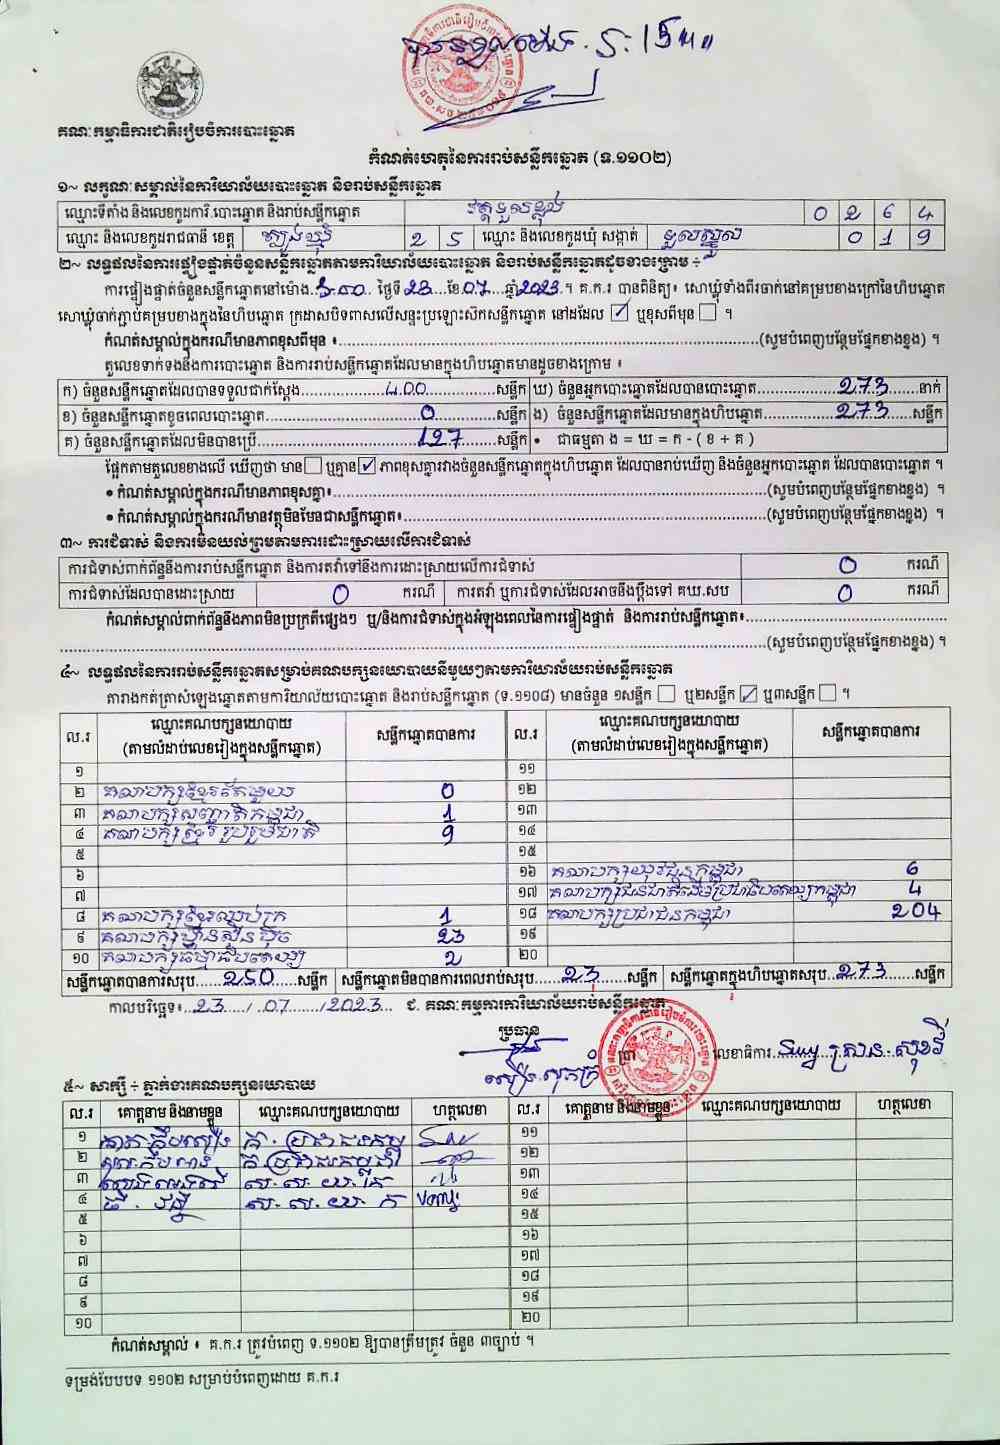 គណៈកម្មាធិការជាតិរៀបចំការបោះឆ្នោត
កំណត់ហេតុនៃការរាប់សន្លឹកឆ្នោត (ទ.១១០២)
១~ លក្ខណៈសម្គាល់នៃការិយាល័យបោះឆ្នោត និងរាប់សន្លឹកឆ្នោត
ឈ្មោះទីតាំង និងលេខកូដការិ.បោះឆ្នោត និងរាប់សន្លឹកឆ្នោត វត្តទួលខ្លុង 0 2 6 4
ឈ្មោះ និងលេខកូដរាជធានី ខេត្ត ត្បូងឃ្មុំ 2 5 ឈ្មោះ និងលេខកូដឃុំ សង្កាត់ ទួលស្នួល 0 1 9
២~ លទ្ធផលនៃការផ្ទៀងផ្ទាត់ចំនួនសន្លឹកឆ្នោតតាមការិយាល័យបោះឆ្នោត និងរាប់សន្លឹកឆ្នោតដូចខាងក្រោម ÷
ការផ្ទៀងផ្ទាត់ចំនួនសន្លឹកឆ្នោតនៅម៉ោង 3:00 ថ្ងៃទី 23 ខែ 07 ឆ្នាំ 2023 ។ គ.ក.រ បានពិនិត្យ៖ សោឃ្លុំទាំងពីរចាក់នៅគម្របខាងក្រៅនៃហិបឆ្នោត
សោឃ្លុំចាក់ភ្ជាប់គម្របខាងក្នុងនៃហិបឆ្នោត ក្រដាសបិទពាសលើសន្ទះប្រឡោះសឹកសន្លឹកឆ្នោត នៅដដែល ☑ ឬខុសពីមុន ☐ ។
កំណត់សម្គាល់ក្នុងករណីមានភាពខុសពីមុន ៖ (សូមបំពេញបន្ថែមផ្នែកខាងខ្នង) ។
តួលេខទាក់ទងនឹងការបោះឆ្នោត និងការរាប់សន្លឹកឆ្នោតដែលមានក្នុងហិបឆ្នោតមានដូចខាងក្រោម ៖
ក) ចំនួនសន្លឹកឆ្នោតដែលបានទទួលជាក់ស្ដែង 400 សន្លឹក ឃ) ចំនួនអ្នកបោះឆ្នោតដែលបានបោះឆ្នោត 273 នាក់
ខ) ចំនួនសន្លឹកឆ្នោតខូចពេលបោះឆ្នោត 0 សន្លឹក ង) ចំនួនសន្លឹកឆ្នោតដែលមានក្នុងហិបឆ្នោត 273 សន្លឹក
គ) ចំនួនសន្លឹកឆ្នោតដែលមិនបានប្រើ 127 សន្លឹក • ជាធម្មតា ង = ឃ = ក - ( ខ + គ )
ផ្អែកតាមតួលេខខាងលើ ឃើញថា មាន ☐ ឬគ្មាន ☑ ភាពខុសគ្នារវាងចំនួនសន្លឹកឆ្នោតក្នុងហិបឆ្នោត ដែលបានរាប់ឃើញ និងចំនួនអ្នកបោះឆ្នោត ដែលបានបោះឆ្នោត ។
• កំណត់សម្គាល់ក្នុងករណីមានភាពខុសគ្នា៖ (សូមបំពេញបន្ថែមផ្នែកខាងខ្នង) ។
• កំណត់សម្គាល់ក្នុងករណីមានវត្ថុមិនមែនជាសន្លឹកឆ្នោត៖ (សូមបំពេញបន្ថែមផ្នែកខាងខ្នង) ។
៣~ ការជំទាស់ និងការមិនយល់ព្រមតាមការដោះស្រាយលើការជំទាស់
ការជំទាស់ពាក់ព័ន្ធនឹងការរាប់សន្លឹកឆ្នោត និងការតវ៉ាទៅនឹងការដោះស្រាយលើការជំទាស់ 0 ករណី
ការជំទាស់ដែលបានដោះស្រាយ 0 ករណី ការតវ៉ា ឬការជំទាស់ដែលអាចនឹងប្ដឹងទៅ គឃ.សប 0 ករណី
កំណត់សម្គាល់ពាក់ព័ន្ធនឹងភាពមិនប្រក្រតីផ្សេងៗ ឬ/និងការជំទាស់ក្នុងអំឡុងពេលនៃការផ្ទៀងផ្ទាត់ និងការរាប់សន្លឹកឆ្នោត៖
(សូមបំពេញបន្ថែមផ្នែកខាងខ្នង) ។
៤~ លទ្ធផលនៃការរាប់សន្លឹកឆ្នោតសម្រាប់គណបក្សនយោបាយនីមួយៗតាមការិយាល័យរាប់សន្លឹកឆ្នោត
តារាងកត់ត្រាសំឡេងឆ្នោតតាមការិយាល័យបោះឆ្នោត និងរាប់សន្លឹកឆ្នោត (ទ.១១០៨) មានចំនួន ១សន្លឹក ☐ ឬ២សន្លឹក ☑ ឬ៣សន្លឹក ☐ ។
ល.រ ឈ្មោះគណបក្សនយោបាយ (តាមលំដាប់លេខរៀងក្នុងសន្លឹកឆ្នោត) សន្លឹកឆ្នោតបានការ ល.រ ឈ្មោះគណបក្សនយោបាយ (តាមលំដាប់លេខរៀងក្នុងសន្លឹកឆ្នោត) សន្លឹកឆ្នោតបានការ
១ ១១
២ គណបក្សខ្មែរតែមួយ 0 ១២
៣ គណបក្សសញ្ជាតិកម្ពុជា 1 ១៣
៤ គណបក្សខ្មែររួបរួមជាតិ 9 ១៤
៥ ១៥
៦ ១៦ គណបក្សយុវជនកម្ពុជា 6
៧ ១៧ គណបក្សជនជាតិដើមប្រជាធិបតេយ្យកម្ពុជា 4
៨ គណបក្សខ្មែរឈប់ក្រ 1 ១៨ គណបក្សប្រជាជនកម្ពុជា 204
៩ គណបក្សហ្វ៊ុនស៊ិនប៉ិច 23 ១៩
១០ គណបក្សធម្មាធិបតេយ្យ 2 ២០
សន្លឹកឆ្នោតបានការសរុប 250 សន្លឹក សន្លឹកឆ្នោតមិនបានការពេលរាប់សរុប 23 សន្លឹក សន្លឹកឆ្នោតក្នុងហិបឆ្នោតសរុប 273 សន្លឹក
កាលបរិច្ឆេទ៖ 23 / 07 / 2023 ជ. គណៈកម្មការការិយាល័យរាប់សន្លឹកឆ្នោត
ប្រធាន
លេខាធិការ
៥~ សាក្សី ÷ ភ្នាក់ងារគណបក្សនយោបាយ
ល.រ គោត្តនាម និងនាមខ្លួន ឈ្មោះគណបក្សនយោបាយ ហត្ថលេខា ល.រ គោត្តនាម និងនាមខ្លួន ឈ្មោះគណបក្សនយោបាយ ហត្ថលេខា
១ ១១
២ ១២
៣ ១៣
៤ ១៤
៥ ១៥
៦ ១៦
៧ ១៧
៨ ១៨
៩ ១៩
១០ ២០
កំណត់សម្គាល់ ៖ គ.ក.រ ត្រូវបំពេញ ទ.១១០២ ឱ្យបានត្រឹមត្រូវ ចំនួន ៣ច្បាប់ ។
ទម្រង់បែបបទ ១១០២ សម្រាប់បំពេញដោយ គ.ក.រ